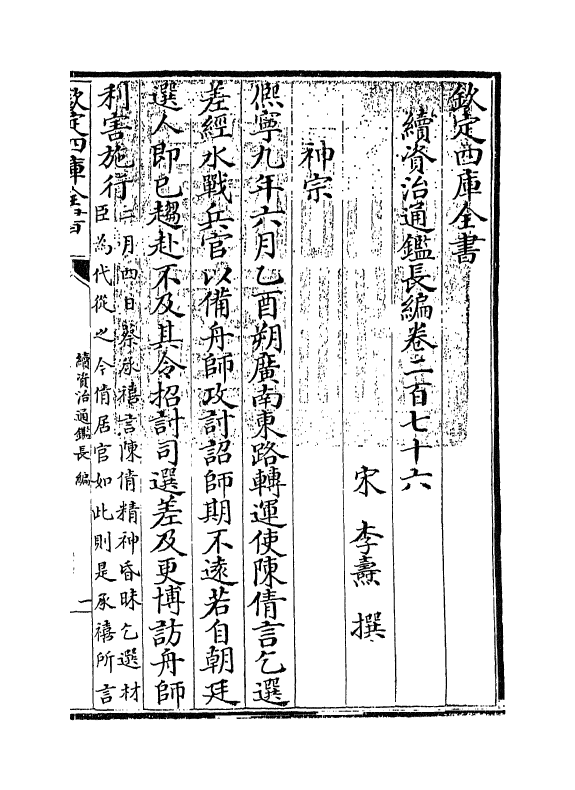 欽定四庫全書
續資治通鑑長編卷二百七十六
宋 李燾 撰
神宗
熈寧九年六月乙酉朔廣南東路轉運使陳倩言乞選
差經水戰兵官以備舟師攻討詔師期不逺若自朝廷
選人即已趨赴不及其令招討司選差及更博訪舟師
利害施行二月四日蔡承禧言陳倩精神昏昧乞選材
臣為代從之今倩居官如此則是承禧所言
欽定四庫全書
續資治通鑑長編
一